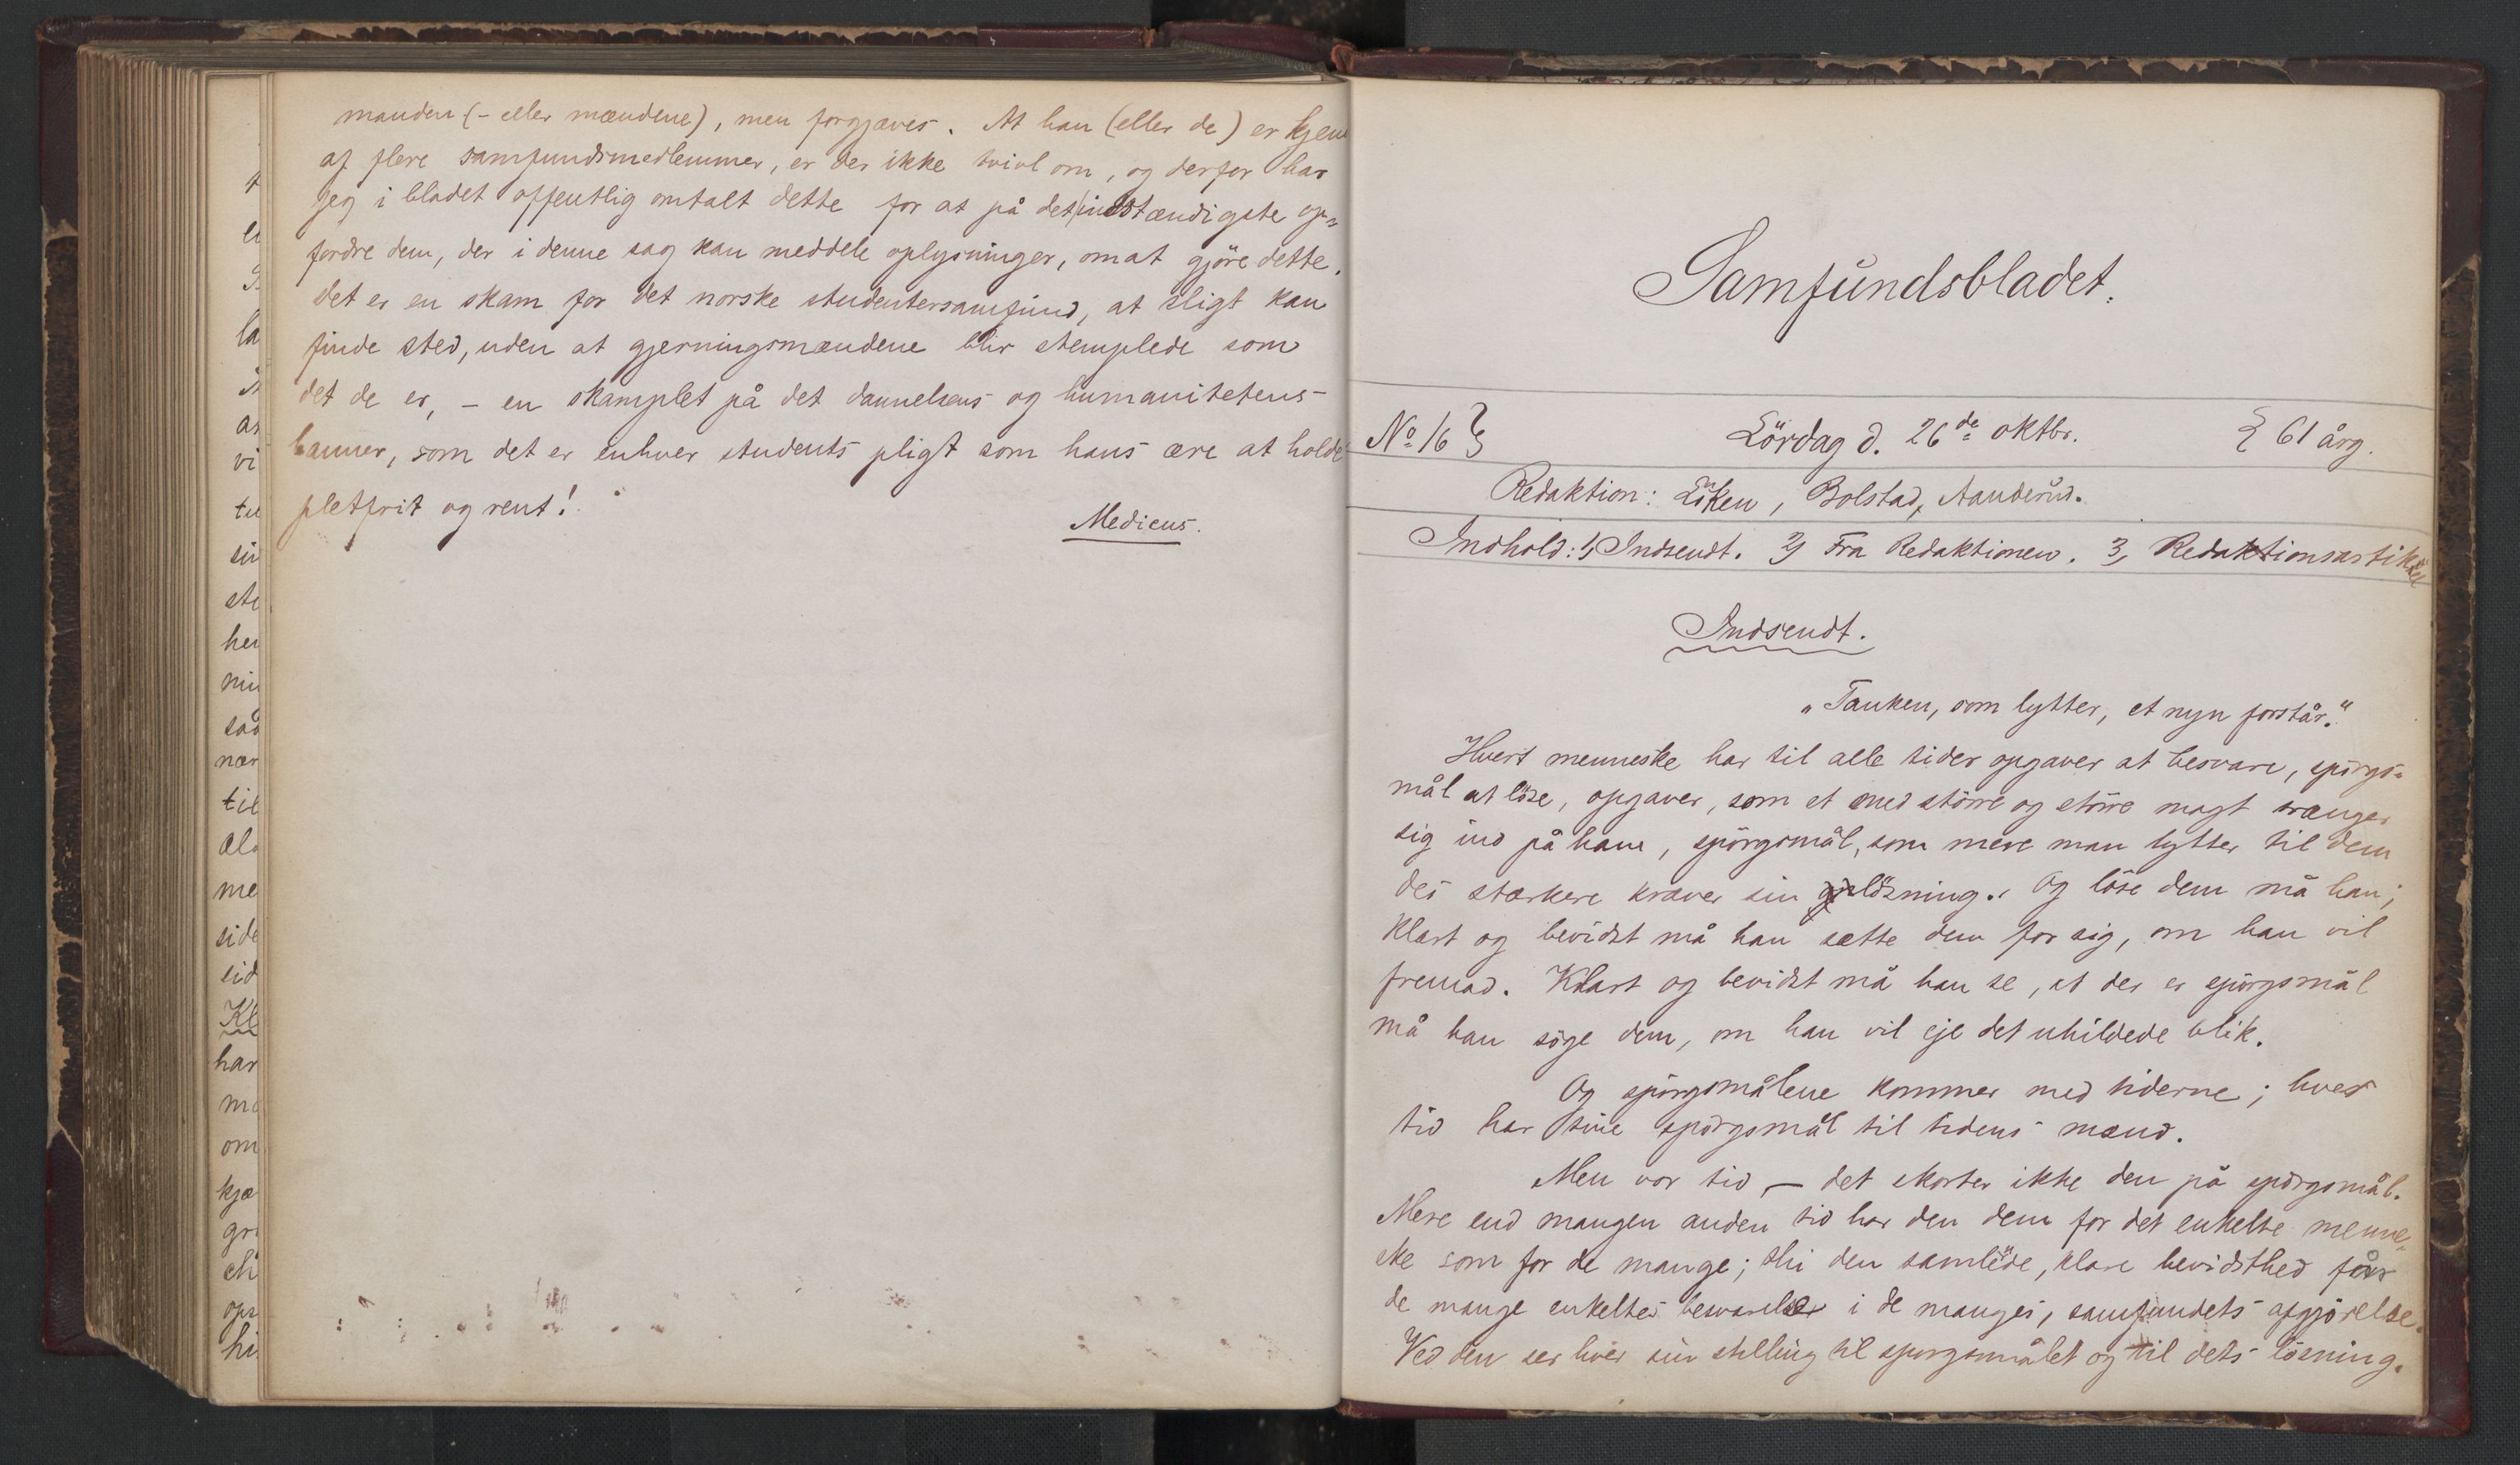 manden (- eller mændene), men forgjæves. At han (eller de) er kjen
af flere samfundsmedlemmer, er der ikke tvivl om, og derfor har
jeg i bladet offentlig omtalt dette for at på det indstændigste op-
fordre dem, der i denne sag kan meddele oplysninger, om at gjöre dette.
Det er en skam for det norske studentersamfund, at sligt kan
finde sted, uden at gjerningsmændene blir stemplede som
det de er, - en skamplet på det dannelsens og humanitetens
banner, som det er enhver students pligt som hans ære at holde
pletfrit og rent!
Medicus.
Samfundsbladet.
No 16 Lördag d. 26de oktbr. 61 årg.
Redaktion: Löken, Bolstad, Aanderud.
Indhold: 1, Indsendt. 2, Fra Redaktionen. 3, Redaktionsartikel
Indsendt.
"Tanken, som lytter, et nyn forstår."
Hvert menneske har til alle tider opgaver at besvare, spörgs-
mål at löse, opgaver, som et med större og större magt trænger
sig ind på ham, spörgsmål, som mere man lytter til dem
des stærkere kræver sin lösning. Og löse dem må han;
klart og bevidst må han sætte dem for sig, om han vil
fremad. Klart og bevidst må han se, at der er spörgsmål
må han söge dem, om han vil eje det uhildede blik.
Og spörgsmålene kommer med tiderne; hver
tid har sine spörgsmål til tidens mænd.
Men vor tid, - det skorter ikke den på spörgsmål.
Mere end mangen anden tid har den dem for det enkelte menne-
ske som for de mange; thi den samlede, klare bevidsthed får
de mange enkeltes besvarelser i de manges, samfundets afgjörelse.
Ved den ser hver sin stilling til spörgsmålet og til dets lösning.